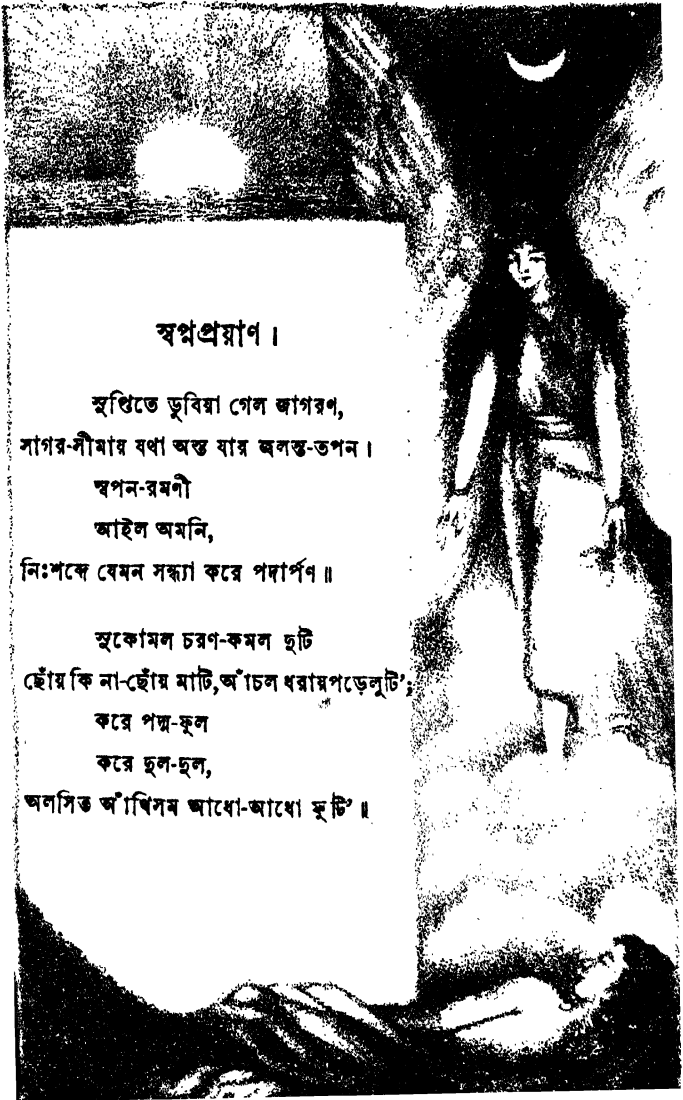 স্বপ্নপ্রয়াণ।
সুপ্তিতে ডুবিয়া গেল জাগরণ,
সাগর-সীমায় যথা অস্ত যায় জলন্ত-তপন।
স্বপন-রমণী
আইল অমনি,
নিঃশব্দে যেমন সন্ধ্যা করে পদার্পণ॥
সুকোমল চরণ-কমল দুটি
ছোঁয় কি না-ছোঁয় মাটি,আঁচল ধরায়পড়েলুটি’;
করে পদ্ম-ফুল
করে দুল-দুল,
অলসিত আঁখিসম আধো-আধো ফুটি’॥